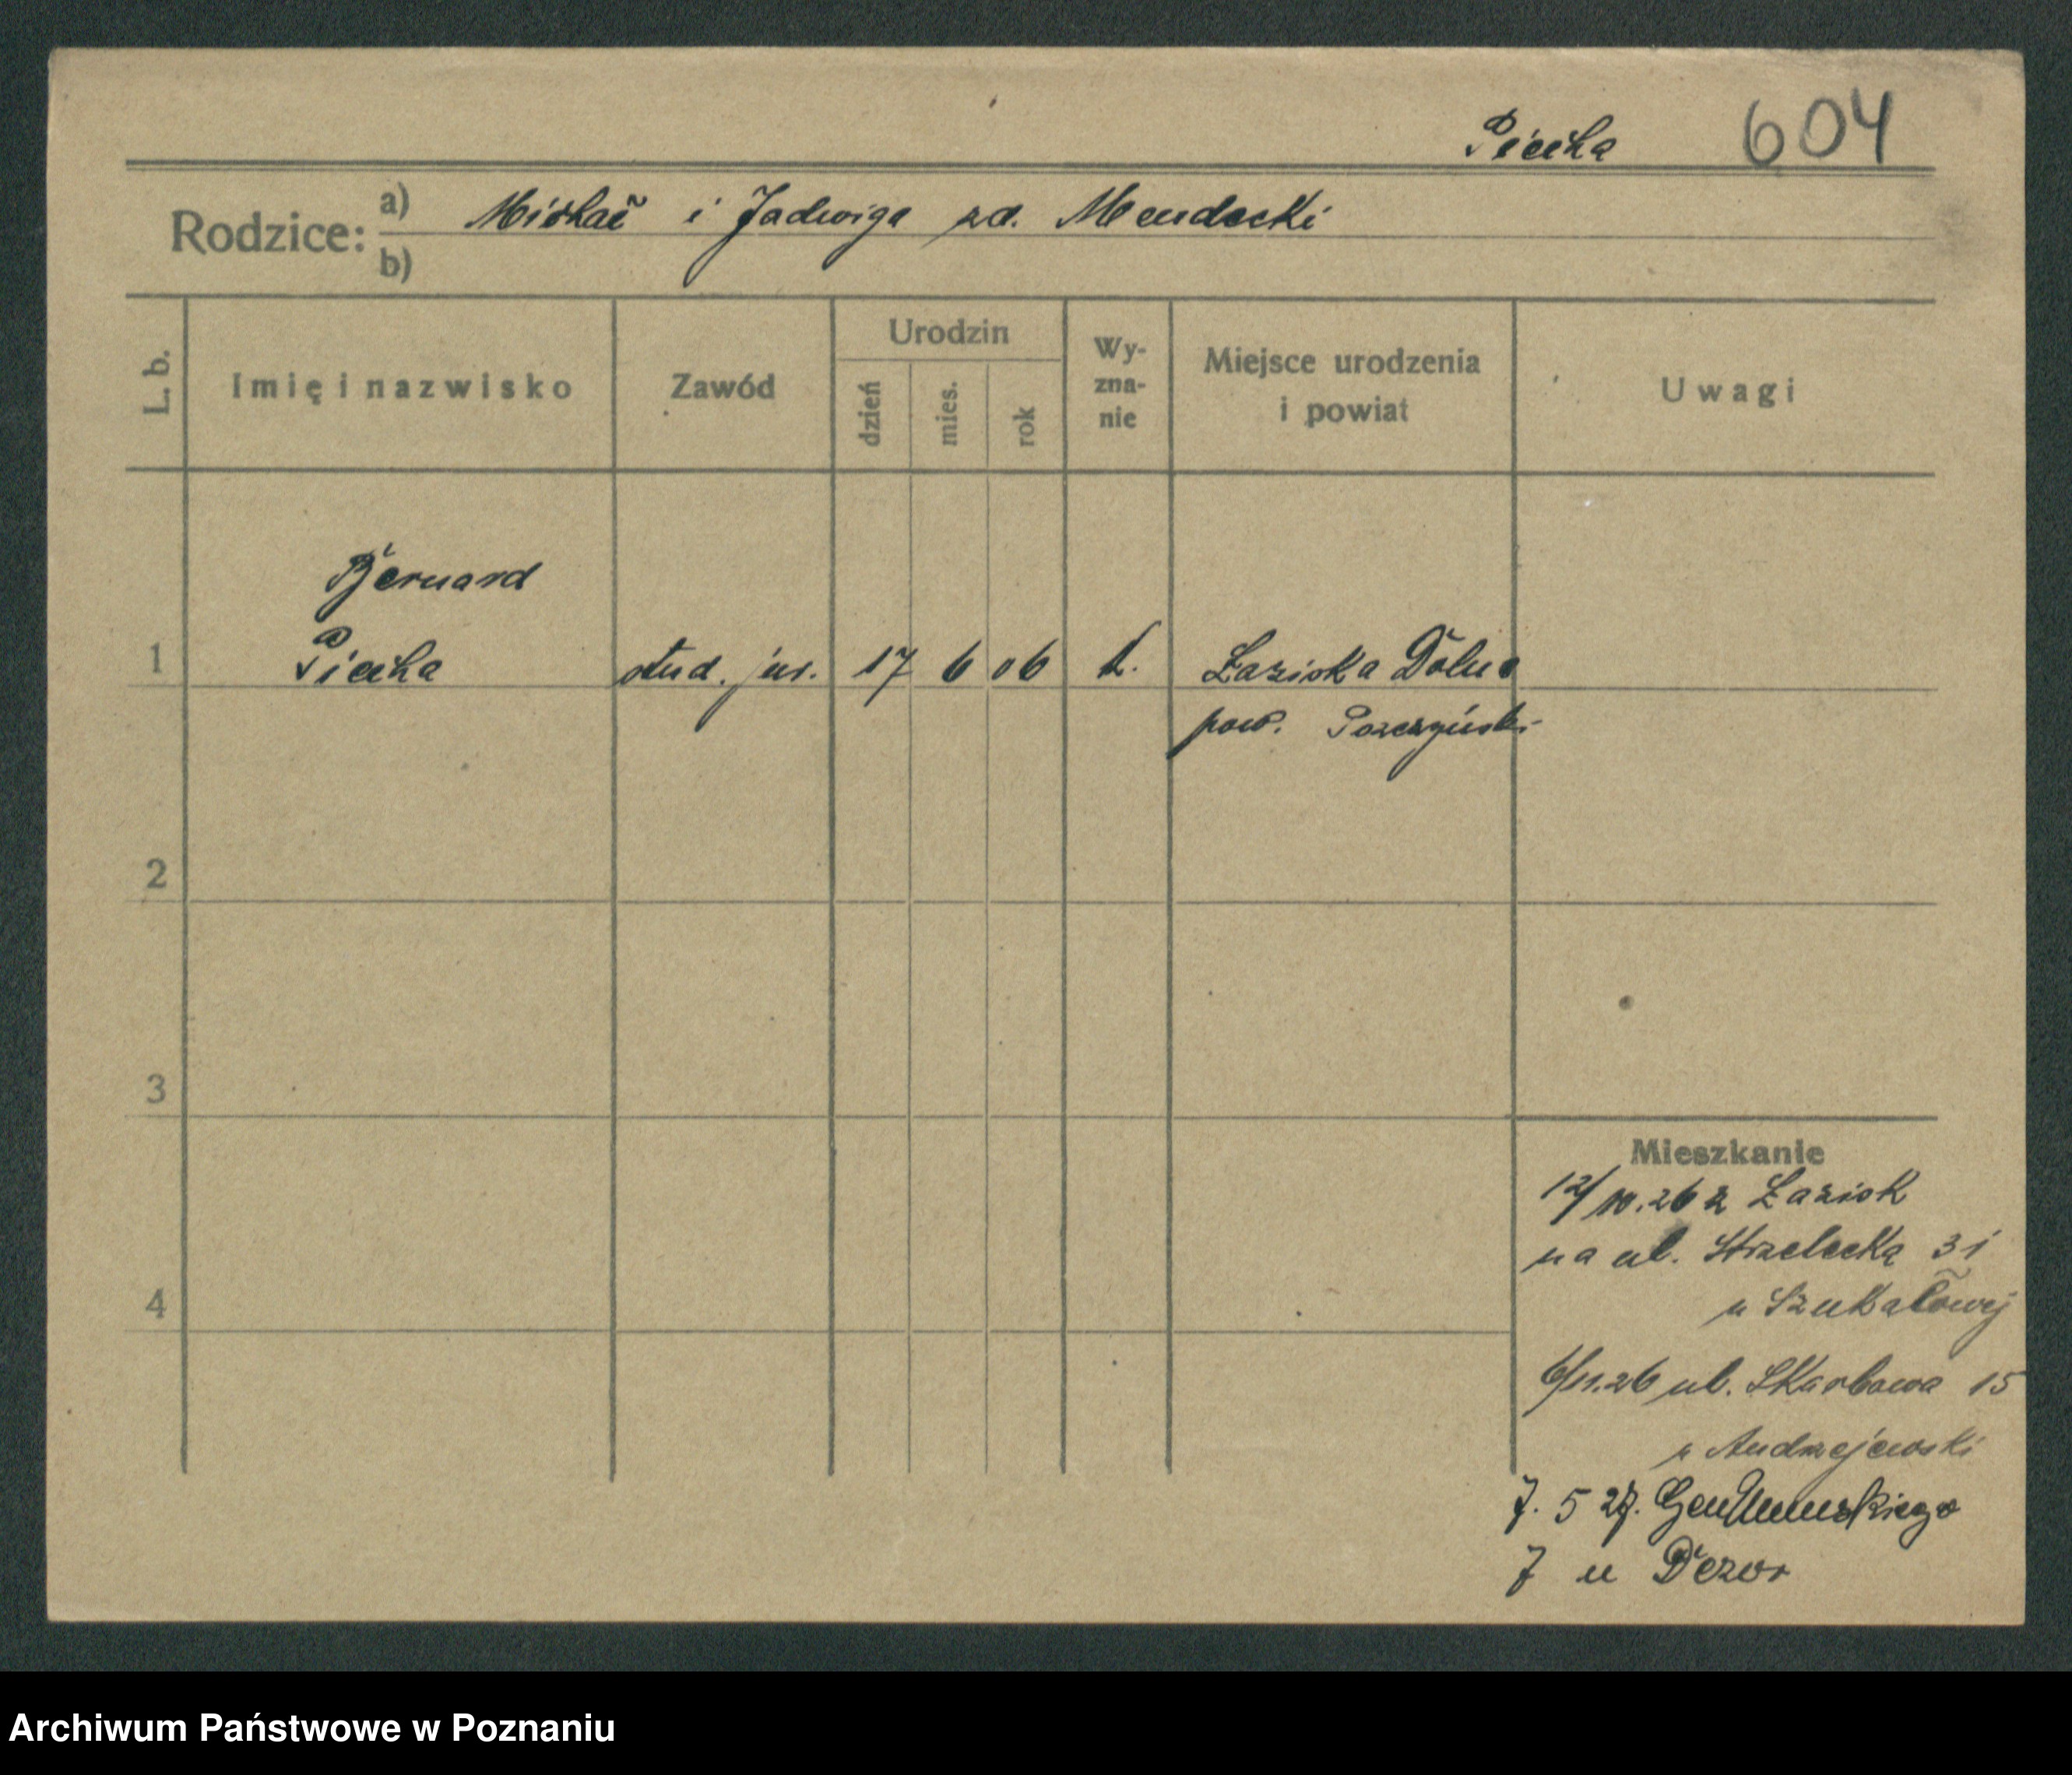 Piecha 604
Rodzice: a) Michał i Jadwiga zd. Mendecki
b)
L. b. Imię i nazwisko Zawód Urodzin dzień mies. rok Wy-zna-nie Miejsce urodzenia i powiat Uwagi
Bernard
1 Piecha stud. jur. 17 6 06 k. Łaziska Dolne
pow. Pszczyński
2
3
Mieszkanie
12/10.26 z Łazisk
na ul. Strzelecką 31
4
u Szukałowej
6/11.26 ul. Skarbowa 15
u Andrzejewski
7. 5 27. Gen Umińskiego
7 u
Archiwum Państwowe w Poznaniu